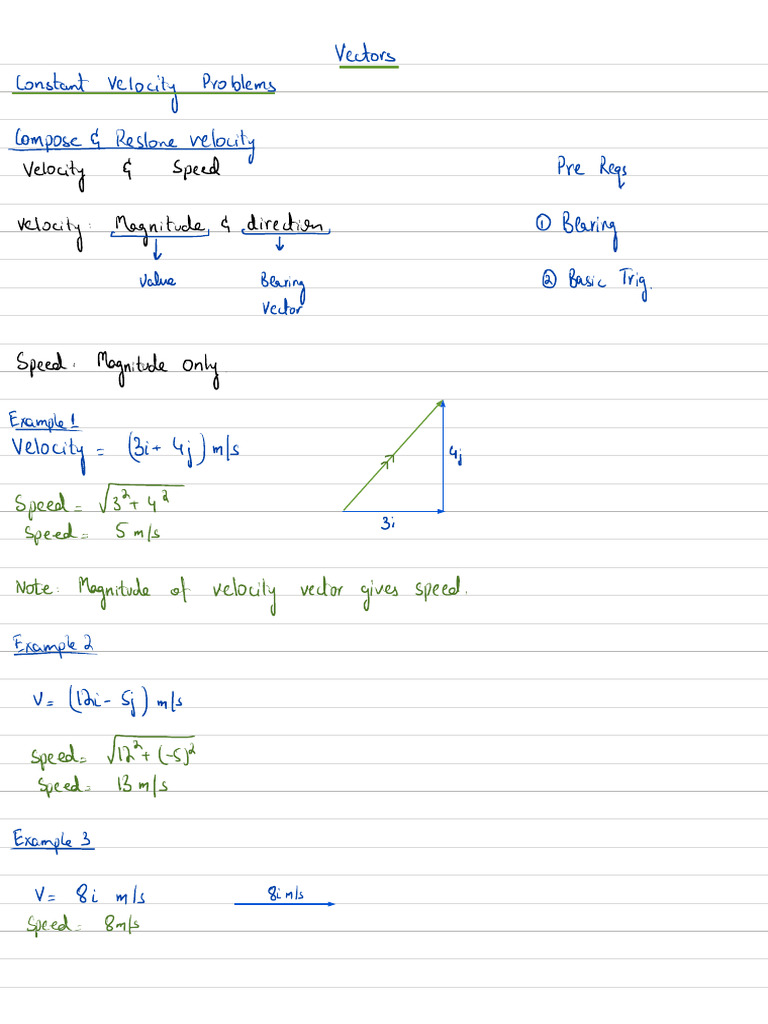 Vectors
Constant Velocity Problems
Compose & Reslove velocity
Velocity & Speed
Pre Reqs
Velocity: Magnitude & direction
① Bearing
↓ ↓
Value Bearing
Vector
② Basic Trig.
Speed: Magnitude only
Example 1
Velocity = (3i + 4j) m/s
4j
Speed = √3² + 4²
3i
Speed = 5 m/s
Note: Magnitude of velocity vector gives speed.
Example 2
V = (12i - 5j) m/s
Speed = √12² + (-5)²
Speed = 13 m/s
Example 3
V = 8i m/s
8i m/s
Speed = 8m/s